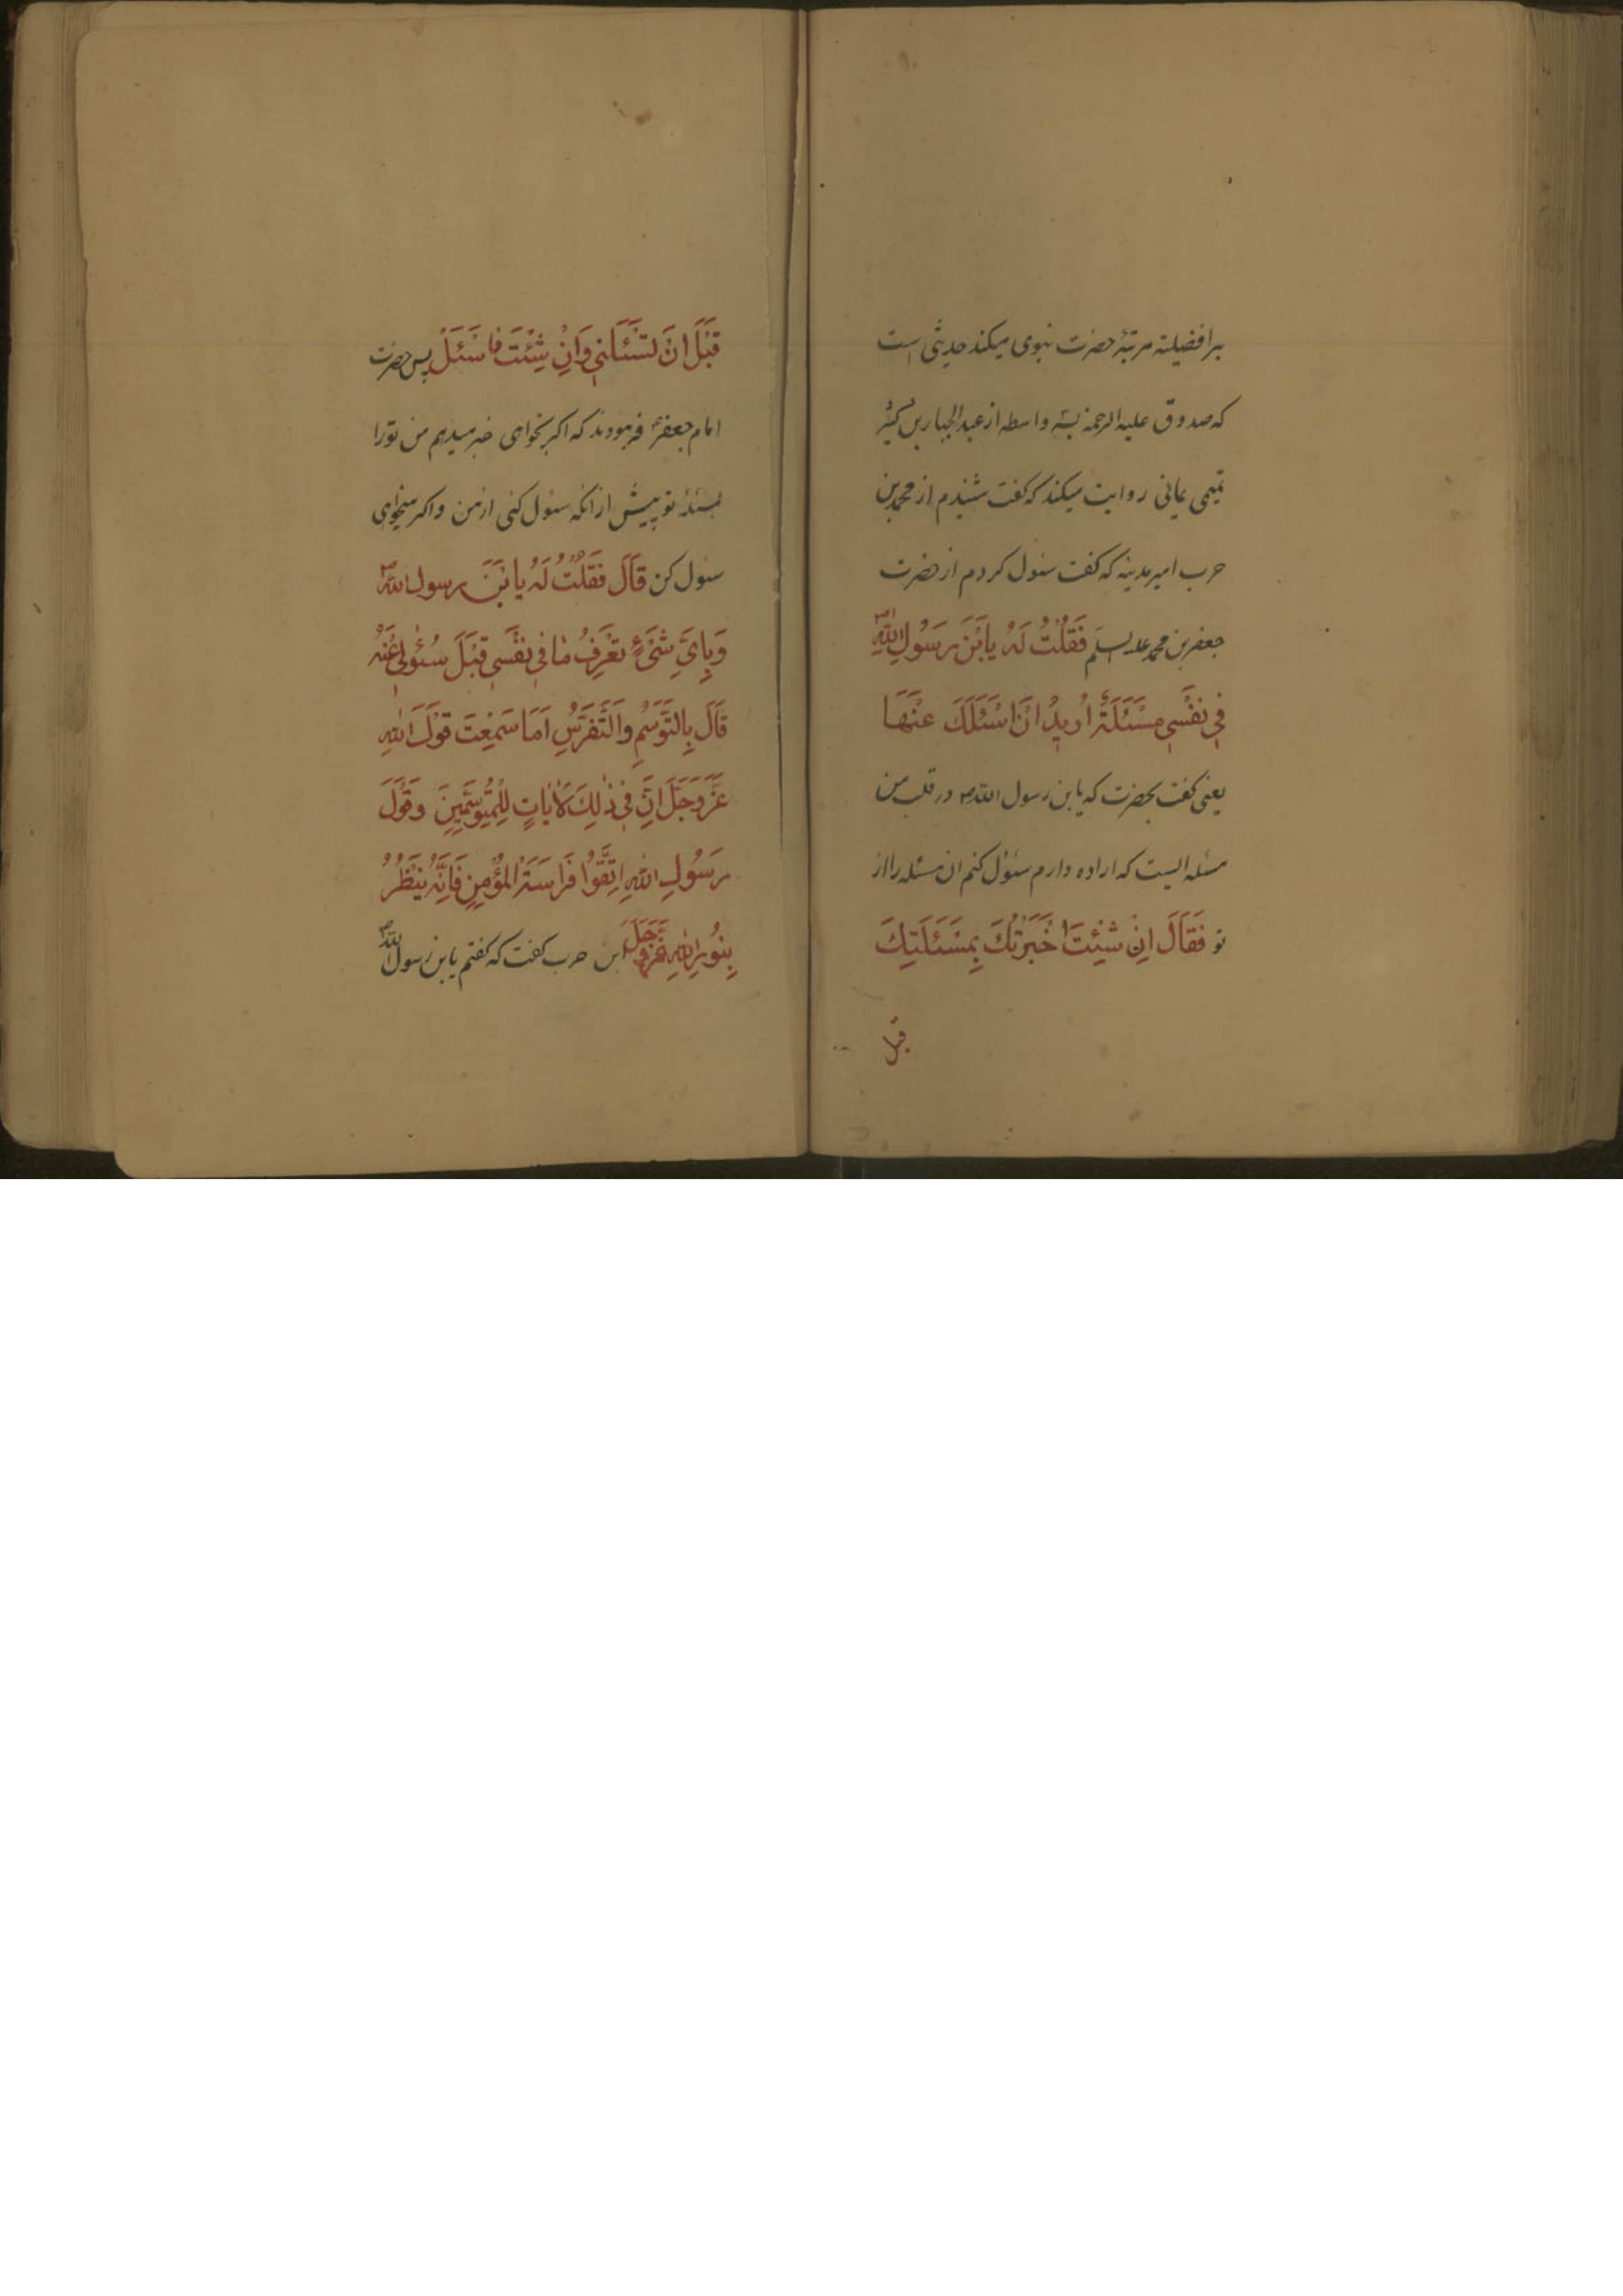 بر افضیلته مرتبهٔ حضرت نبوی میکند حدیثی است
که صدوق علیه الرحمة بسه واسطه از عبد الجبار بن کثیر
تمیمی یمانی روایت میکند که گفت شنیدم از محمد بن
حرب امیر مدینه که گفت سئول کردم از حضرت
جعفر بن محمد علیه السلم فَقُلْتُ لَهُ یا بْنَ رَسُولِ اللّٰهِ ص
فِي نَفْسِي مَسْئَلَةٌ اُرِيدُ اَنْ اَسْئَلَكَ عَنْهَا
یعنی گفت بحضرت که یا بن رسول الله ص در قلب من
مسئله ایست که اراده دارم سئول کنم ان مسئله را از
تو فَقَالَ اِنْ شِئْتَ اَخْبَرْتُكَ بِمَسْئَلَتِكَ
قبل
قَبْلَ اَنْ تَسْئَلَنِي وَاِنْ شِئْتَ فَاسْئَلْ پس حضرت
امام جعفر ع فرمودند که اکر بخواهی خبر میدهم من تو را
بمسئلهٔ تو پیش از انکه سئول کنی از من و اکر میخواهی
سئول کن قَالَ فَقُلْتُ لَهُ یا بْنَ رسول اللّٰه ص
وَبِاَيِّ شَيْءٍ تَعْرِفُ مٰا فِي نَفْسِي قَبْلَ سُئٰولِي عَنْهُ
قَالَ بِالتَّوَسُّمِ وَالتَّفَرُّسِ اَمَا سَمِعْتَ قَوْلَ اللّٰهِ
عَزَّوَجَلَّ اِنَّ فِي ذٰلِكَ لَاٰیٰاتٍ لِلْمُتَوَسِّمِينَ وَقَوْلَ
رَسُولِ اللّٰهِ اِتَّقُوا فَرَاسَةَ الْمُؤْمِنِ فَاِنَّهُ يَنْظُرُ
بِنُورِ اللّٰهِ عَزَّوَجَلَّ ابن حرب گفت که گفتم یا بن رسول الله ص